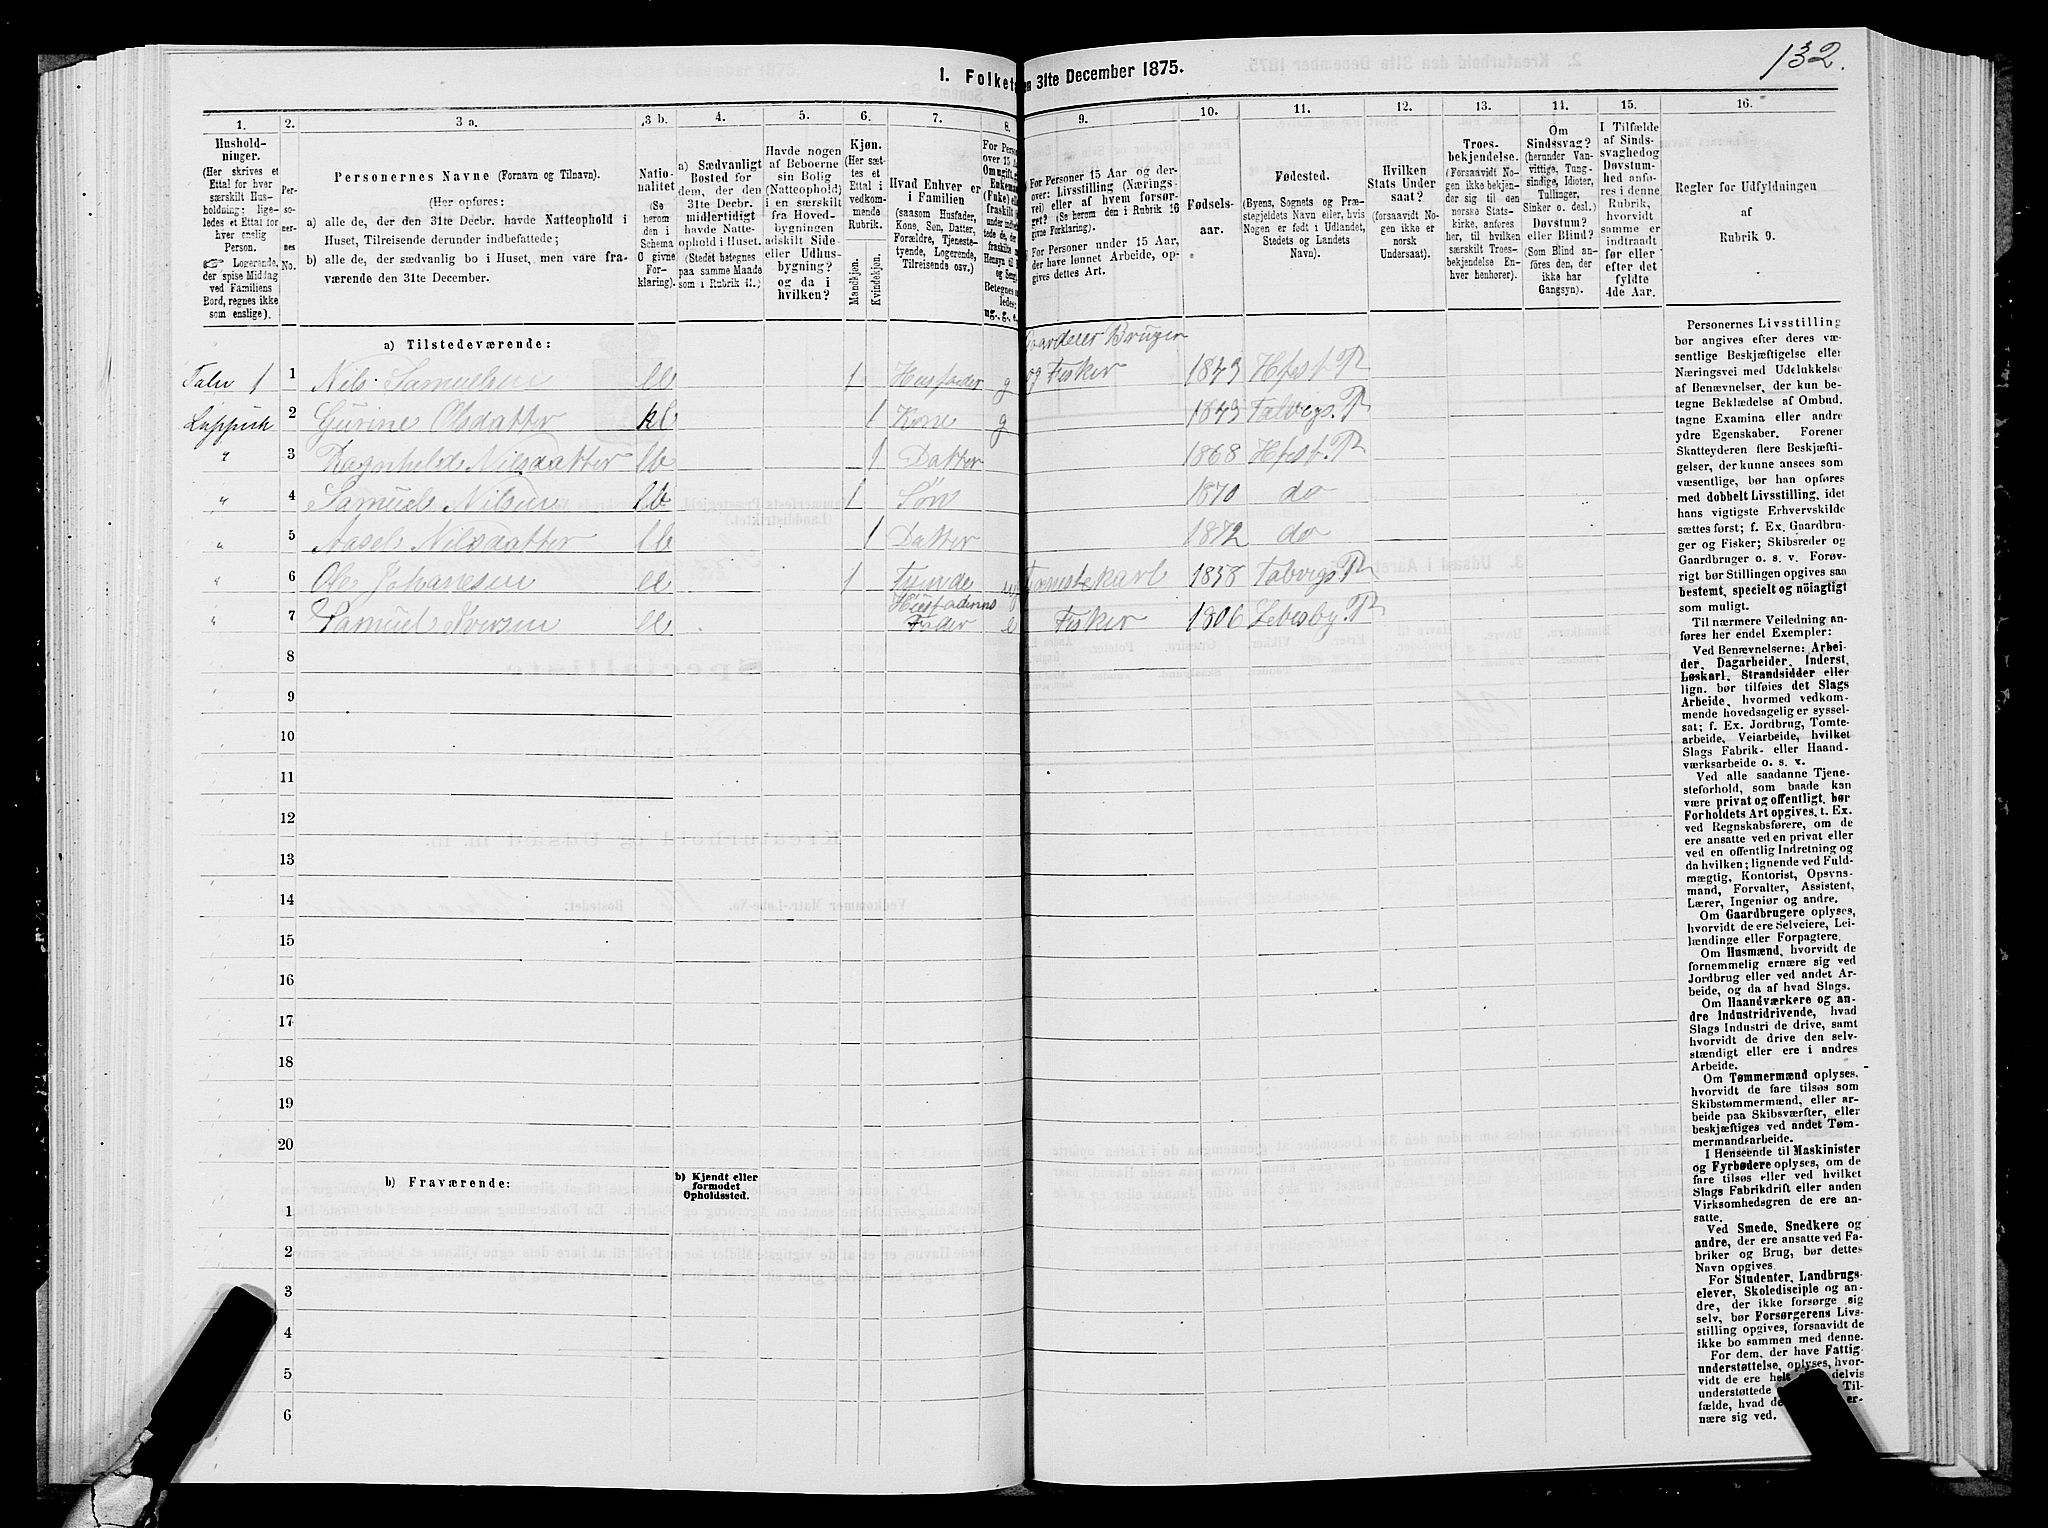 132.
1. Folket en 31te December 1875.
1. 2. 3 a. 3 b. 4. 5. 6. 7. 8. 9. 10. 11. 12. 13. 14. 15. 16.
Hushold-
ninger.
(Her skrives et
Ettal for hver
særskilt Hus-
holdning; lige-
ledes et Ettal for
hver enslig
Person.
☞ Logerende,
der spise Middag
ved Familiens
Bord, regnes ikke
som enslige).
Per-
so-
ner-
nes
No.
Personernes Navne (Fornavn og Tilnavn).
(Her opføres:
a) alle de, der den 31te Decbr. havde Natteophold i
Huset, Tilreisende derunder indbefattede;
b) alle de, der sædvanlig bo i Huset, men vare fra-
værende den 31te December.
Natio-
nalitet
(Se
herom
den i
Schema
O givne
For-
klaring).
a) Sædvanligt
Bosted for
dem, der den
31te Decbr.
midlertidigt
havde Natte-
ophold i Huset.
(Stedet betegnes
paa samme Maade
som i Rubrik 11.)
Havde nogen
af Beboerne
sin Bolig
(Natteophold)
i en særskilt
fra Hoved-
bygningen
adskilt Side-
eller Udhus-
bygning?
og da i
hvilken?
Kjøn.
(Her sæt-
tes et
Ettal i
vedkom-
mende
Rubrik.
Mandkjøn.
Kvindekjøn.
Hvad Enhver er
i Familien
(saasom Husfader,
Kone, Søn, Datter,
Forældre, Tjeneste-
tyende, Logerende,
Tilreisende osv.)
For Person
over 15 Aar
Om ugift, g
Enkema
(Fuke) el
fraskilt
ug., g., e.
For Personer 15 Aar og der-
over: Livsstilling (Nærings-
vei) eller af hvem forsør-
get? (Se herom den i Rubrik 16
givne Forklaring).
For Personer under 15 Aar,
der have lønnet Arbeide, op-
gives dettes Art.
Fødsels-
aar.
Fødested.
(Byens, Sognets og Præ-
stegjeldets Navn eller, hvis
Nogen er født i Udlandet,
Stedets og Landets
Navn).
Hvilken
Stats Under-
saat?
(forsaavidt No-
gen ikke er
norsk
Undersaat).
Troes-
bekjendelse.
(Forsaavidt No-
gen ikke bekjen-
der sig til den
norske Stats-
kirke, anføres
her, til hvilken
særskilt Troes-
bekjendelse En-
hver henhører).
Om
Sindssvag?
(herunder Van-
vittige, Tung-
sindige, Idioter,
Tullinger,
Sinker o. desl.)
Døvstum?
eller Blind?
(Som Blind an-
føres den, der
ikke har
Gangsyn).
I Tilfælde
af Sinds-
svaghed og
Døvstum-
hed anfø-
res i denne
Rubrik,
hvorvidt
samme er
indtraadt
før eller
efter det
fyldte
4de Aar.
Regler for Udfyldningen
af
Rubrik 9.
a) Tilstedeværende:
Gaardeier Bruger
1 1 Nils Samuelsen 1 Husfader g og Fisker 1843
2 Gurine Olsdatter 1 Kone g 1843 Talvigs. P
" 3 Ragnhild Nilsdatter 1 Datter 1868
" 4 Samuel Nilsen 1 Søn 1870 do
" 5 Aasel Nilsdatter 1 Datter 1872 do
" 6 Ole Johanesen 1 Tyende ug Tjenestekarl 1858 Talvigs. P
" 7 Samuel Iversen Husfaderens Fader e Fisker 1806 Lebesby P
8
9
10
11
12
13
14
15
16
17
18
19
20
b) Fraværende:
b) Kjendt eller
formodet
Opholdssted.
1
2
3
4
5
6
Personernes Livsstilling
bør angives efter deres væ-
sentlige Beskjæftigelse eller
Næringsvei med Udelukkelse
af Benævnelser, der kun be-
tegne Beklædelse af Ombud,
tagne Examina eller andre
ydre Egenskaber. Forener
Skatteyderen flere Beskjæfti-
gelser, der kunne ansees som
væsentlige, bør han opføres
med dobbelt Livsstilling, idet
hans vigtigste Erhvervskilde
sættes først; f. Ex. Gaardbru-
ger og Fisker; Skibsreder og
Gaardbruger o. s. v. Forøv-
rigt bør Stillingen opgives saa
bestemt, specielt og nöiagtigt
som muligt.
Til nærmere Veiledning an-
føres her endel Exempler:
Ved Benævnelserne: Arbei-
der, Dagarbeider, Inderst,
Løskarl, Strandsidder eller
lign. bør tilføies det Slags
Arbeide, hvormed vedkom-
mende hovedsagelig er syssel-
sat; f. Ex. Jordbrug, Tomte-
arbeide, Veiarbeide, hvilket
Slags Fabrik- eller Haand-
værksarbeide o. s. v.
Ved alle saadanne Tjene-
steforhold, som baade kan
være privat og offentligt, bør
Forholdets Art opgives, t. Ex.
ved Regnskabsførere, om de
ere ansatte ved en privat eller
ved en offentlig Indretning og
da hvilken; lignende ved Fuld-
mægtig, Kontorist, Opsyns-
mand, Forvalter, Assistent,
Lærer, Ingeniør og andre.
Om Gaardbrugere oplyses,
hvorvidt de ere Selveiere, Lei-
lændinge eller Forpagtere.
Om Husmænd, hvorvidt de
fornemmelig ernære sig ved
Jordbrug eller ved andet Ar-
beide, og da af hvad Slags.
Om Haandværkere og an-
dre Industridrivende, hvad
Slags Industri de drive, samt
hvorvidt de drive den selv-
stændigt eller ere i andres
Arbeide.
Om Tømmermænd oplyses,
hvorvidt de fare tilsøs som
Skibstømmermænd, eller ar-
beide paa Skibsværfter, eller
beskjæftiges ved andet Tøm-
mermandsarbeide.
I Henseende til Maskinister
og Fyrbødere oplyses, om de
fare tilsøs eller ved hvilket
Slags Fabrikdrift eller anden
Virksomhedsgren de ere an-
satte.
Ved Smede, Snedkere og
andre, der ere ansatte ved Fa-
briker og Brug, bør dettes
Navn opgives.
For Studenter, Landbrugs-
elever, Skoledisciple og an-
dre, der ikke forsørge sig
selv, bør Forsørgerens Livs-
stilling opgives, forsaavidt de
ikke bo sammen med denne.
For dem, der have Fattig-
understøttelse, oplyses, hvor-
vidt de ere delvis
understøttede Til-
fælde, hvad de er-
nære sig ved.